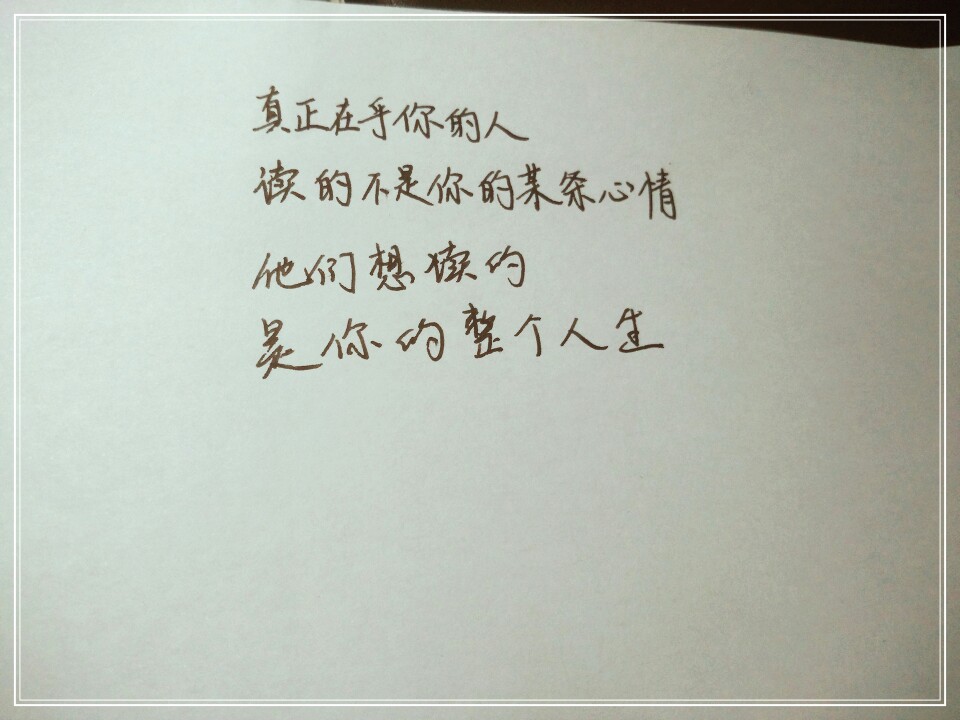 真正在乎你的人
读的不是你的某条心情
他们想读的
是你的整个人生